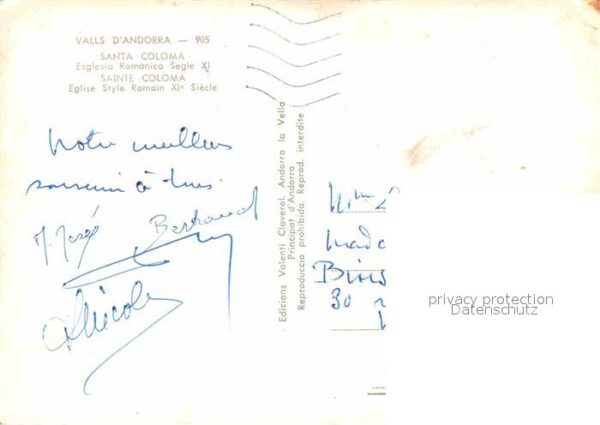 VALLS D'ANDORRA — 905
SANTA COLOMA
Esglesia Romànica Segle XI
SAINTE COLOMA
Eglise Style Romain XIe Siècle
Notre meilleur
souvenir à tous
J. José Bertrand
Nicole
Edicions Valenti Claverol. Andorra la Vella
Principat d'Andorra
Reproduccio prohibida. Reprod. interdite
30
privacy protection
Datenschutz